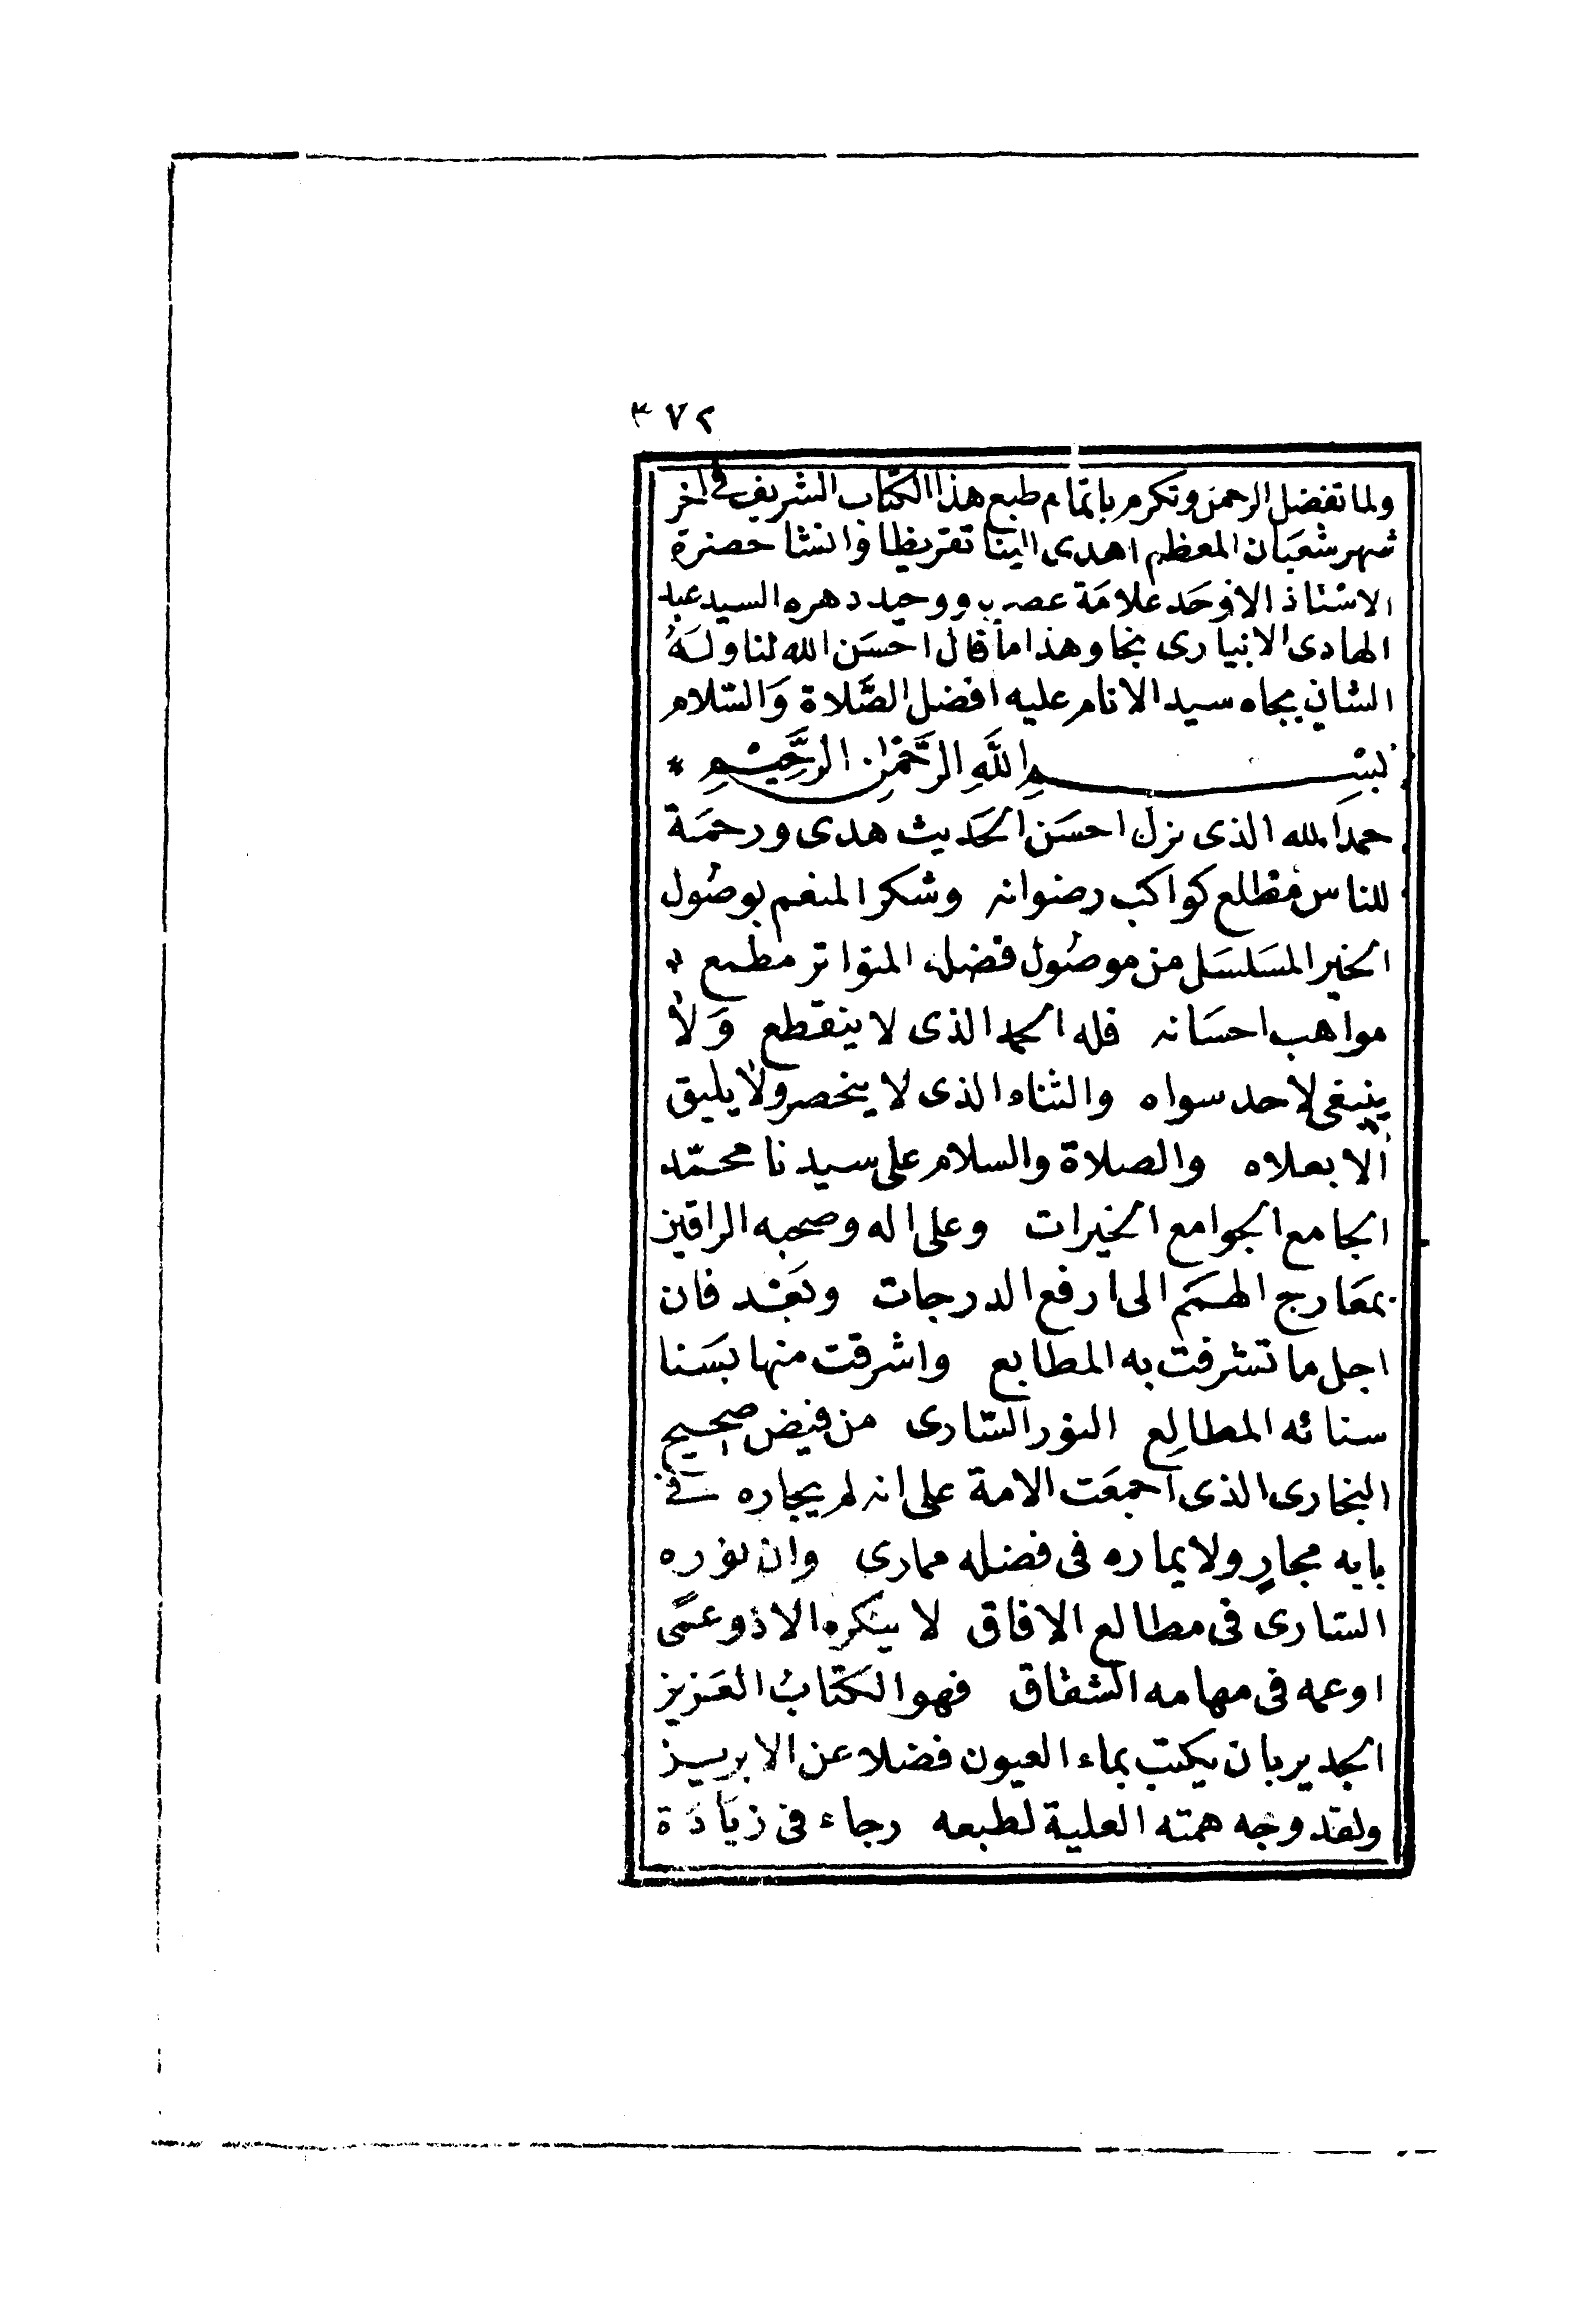 ٣٧٢
ولما تفضل الرحمن وتكرم باتمام طبع هذا الكتاب الشريف في اخر
شهر شعبان المعظم اهدى الينا تقريظا فانشا حضرة
الاستاذ الاوحد علامة عصره ووحيد دهره السيد عبد
الهادى الانيارى نجا وهذا ما قال احسن الله لنا وله
الشانى بجاه سيد الانام عليه افضل الصلاة والسلام
بسم الله الرحمن الرحيم *
حمدا لله الذى نزل احسن الحديث هدى ورحمة
للناس مطلع كواكب رضوانه وشكر المنعم بوصول
الخير المسلسل من موصول فضله المتواتر مطمع
مواهب احسانه فله الحمد الذى لا ينقطع ولا
ينبغى لاحد سواه والثناء الذى لا ينحصر ولا يليق
الا بعلاه والصلاة والسلام على سيدنا محمد
الجامع الجوامع الخيرات وعلى اله وصحبه الراقين
بمعارج الهمم الى ارفع الدرجات وبعد فان
اجل ما تشرفت به المطابع واشرقت منها بسنا
سنائه المطالع النور السارى من فيض صحيح
البخارى الذى اجمعت الامة على انه لم يجاره فى
بابه مجارٍ ولا يماره فى فضله ممارى وان نوره
السارى فى مطالع الافاق لا ينكره الا ذو عمًى
او عمه فى مهامه الشقاق فهو الكتاب العزيز
الجدير بان يكتب بماء العيون فضلا عن الابريز
ولقد وجه همته العلية لطبعه رجاء فى زيادة